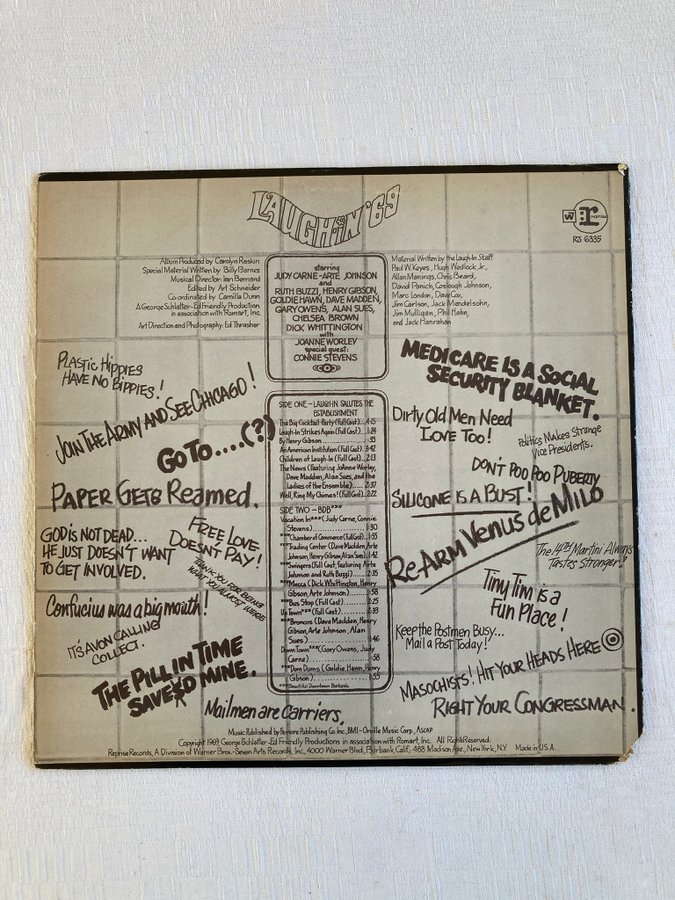 LAUGH-IN '69
W r reprise
RS 6335
Album Produced by Carolyn Raskin
Special Material Written by Billy Barnes
Musical Director: Ian Bernard
Edited by Art Schneider
Co-ordinated by Camilla Dunn
A George Schlatter-Ed Friendly Production
in association with Romart, Inc.
Art Direction and Photography: Ed Thrasher
starring
JUDY CARNE-ARTE JOHNSON
and
RUTH BUZZI, HENRY GIBSON,
GOLDIE HAWN, DAVE MADDEN,
GARY OWENS, ALAN SUES,
CHELSEA BROWN
DICK WHITTINGTON
with
JOANNE WORLEY
special guest:
CONNIE STEVENS
Material Written by the Laugh-In Staff
Paul W. Keyes, Hugh Wedlock, Jr.,
Allan Manings, Chris Beard,
David Panich, Coslough Johnson,
Marc London, Dave Cox,
Jim Carlson, Jack Mendelsohn,
Jim Mulligan, Phil Hahn,
and Jack Hanrahan
PLASTIC HIPPIES
HAVE NO BIPPIES!
JOIN THE ARMY AND SEE CHICAGO!
GO TO....(?)
PAPER GETS REAMED.
GOD IS NOT DEAD...
HE JUST DOESN'T WANT
TO GET INVOLVED.
FREE LOVE
DOESN'T PAY!
THANK YOU FOR BEING
Confucius was a big mouth!
IT'S AVON CALLING
COLLECT.
THE PILL IN TIME
SAVES MINE.
Mailmen are Carriers.
SIDE ONE - LAUGH-IN SALUTES THE
ESTABLISHMENT
The Big Cocktail Party (Full Cast)..4:15
Laugh-In Strikes Again (Full Cast)...1:24
By Henry Gibson... :33
An American Institution (Full Cast) 3:42
Children of Laugh-In (Full Cast)..2:13
The News (Featuring JoAnne Worley,
Dave Madden, Alan Sues, and the
Ladies of the Ensemble)...2:37
Well, Ring My Chimes! (Full Cast)..2:22
SIDE TWO - BDB***
Vacation In*** (Judy Carne, Connie
Stevens)...1:30
***Chamber of Commerce (Full Cast)..1:55
***Trading Center (Dave Madden, Arte
Johnson, Henry Gibson, Alan Sues)..1:42
***Swingers (Full Cast, featuring Arte
Johnson and Ruth Buzzi)...2:35
***Mecca (Dick Whittington, Henry
Gibson, Arte Johnson)...1:58
***Bus Stop (Full Cast)...2:25
Up Town*** (Full Cast)...2:33
***Broncos (Dave Madden, Henry
Gibson, Arte Johnson, Alan
Sues)...1:46
Down Town*** (Gary Owens, Judy
Carne)... :58
***Dum Dums (Goldie Hawn, Henry
Gibson)... :55
***Beautiful Downtown Burbank
MEDICARE IS A SOCIAL
SECURITY BLANKET.
Dirty Old Men Need
Love Too!
Politics Makes Strange
Vice Presidents.
DON'T POO POO PUBERTY
SILICONE IS A BUST!
RE-ARM VENUS de MILO
The 14TH Martini Always
Tastes Stronger!
Tiny Tim is a
Fun Place!
Keep the Postmen Busy...
Mail a Post Today!
MASOCHISTS! HIT YOUR HEADS HERE
RIGHT YOUR CONGRESSMAN.
Music Published by Sonora Publishing Co. Inc., BMI - Orville Music Corp., ASCAP
Copyright 1969, George Schlatter-Ed Friendly Productions in association with Romart, Inc. All Rights Reserved.
Reprise Records, A Division of Warner Bros.-Seven Arts Records, Inc., 4000 Warner Blvd., Burbank, Calif., 488 Madison Ave., New York, N.Y. Made in U.S.A.